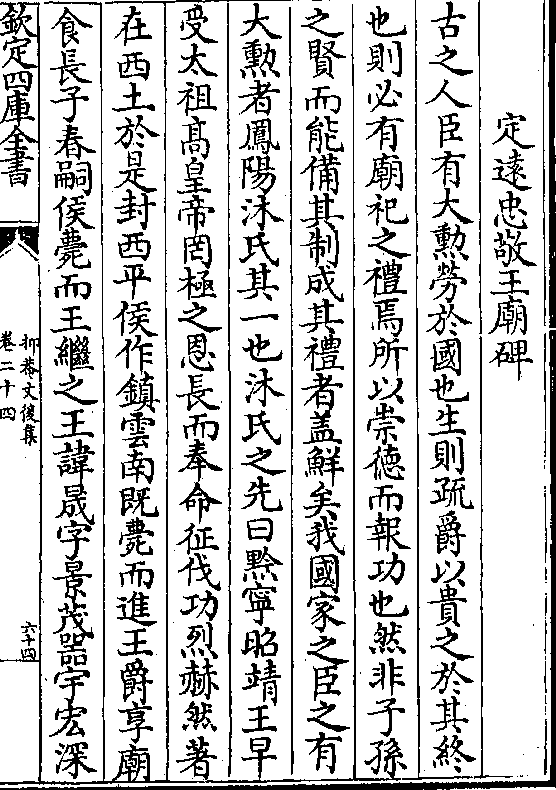 定遠忠敬王廟碑
古之人臣有大勲勞於國也生則疏爵以貴之於其終
也則必有廟祀之禮焉所以崇德而報功也然非子孫
之賢而能備其制成其禮者盖鮮矣我國家之臣之有
大勲者鳳陽沐氏其一也沐氏之先曰黔寧昭靖王早
受太祖髙皇帝罔極之恩長而奉命征伐功烈赫然著
在西土於是封西平侯作鎮雲南既薨而進王爵享廟
食長子春嗣侯薨而王繼之王諱晟字景茂器宇宏深
欽定四庫全書
抑菴文後集
卷二十四
六十四